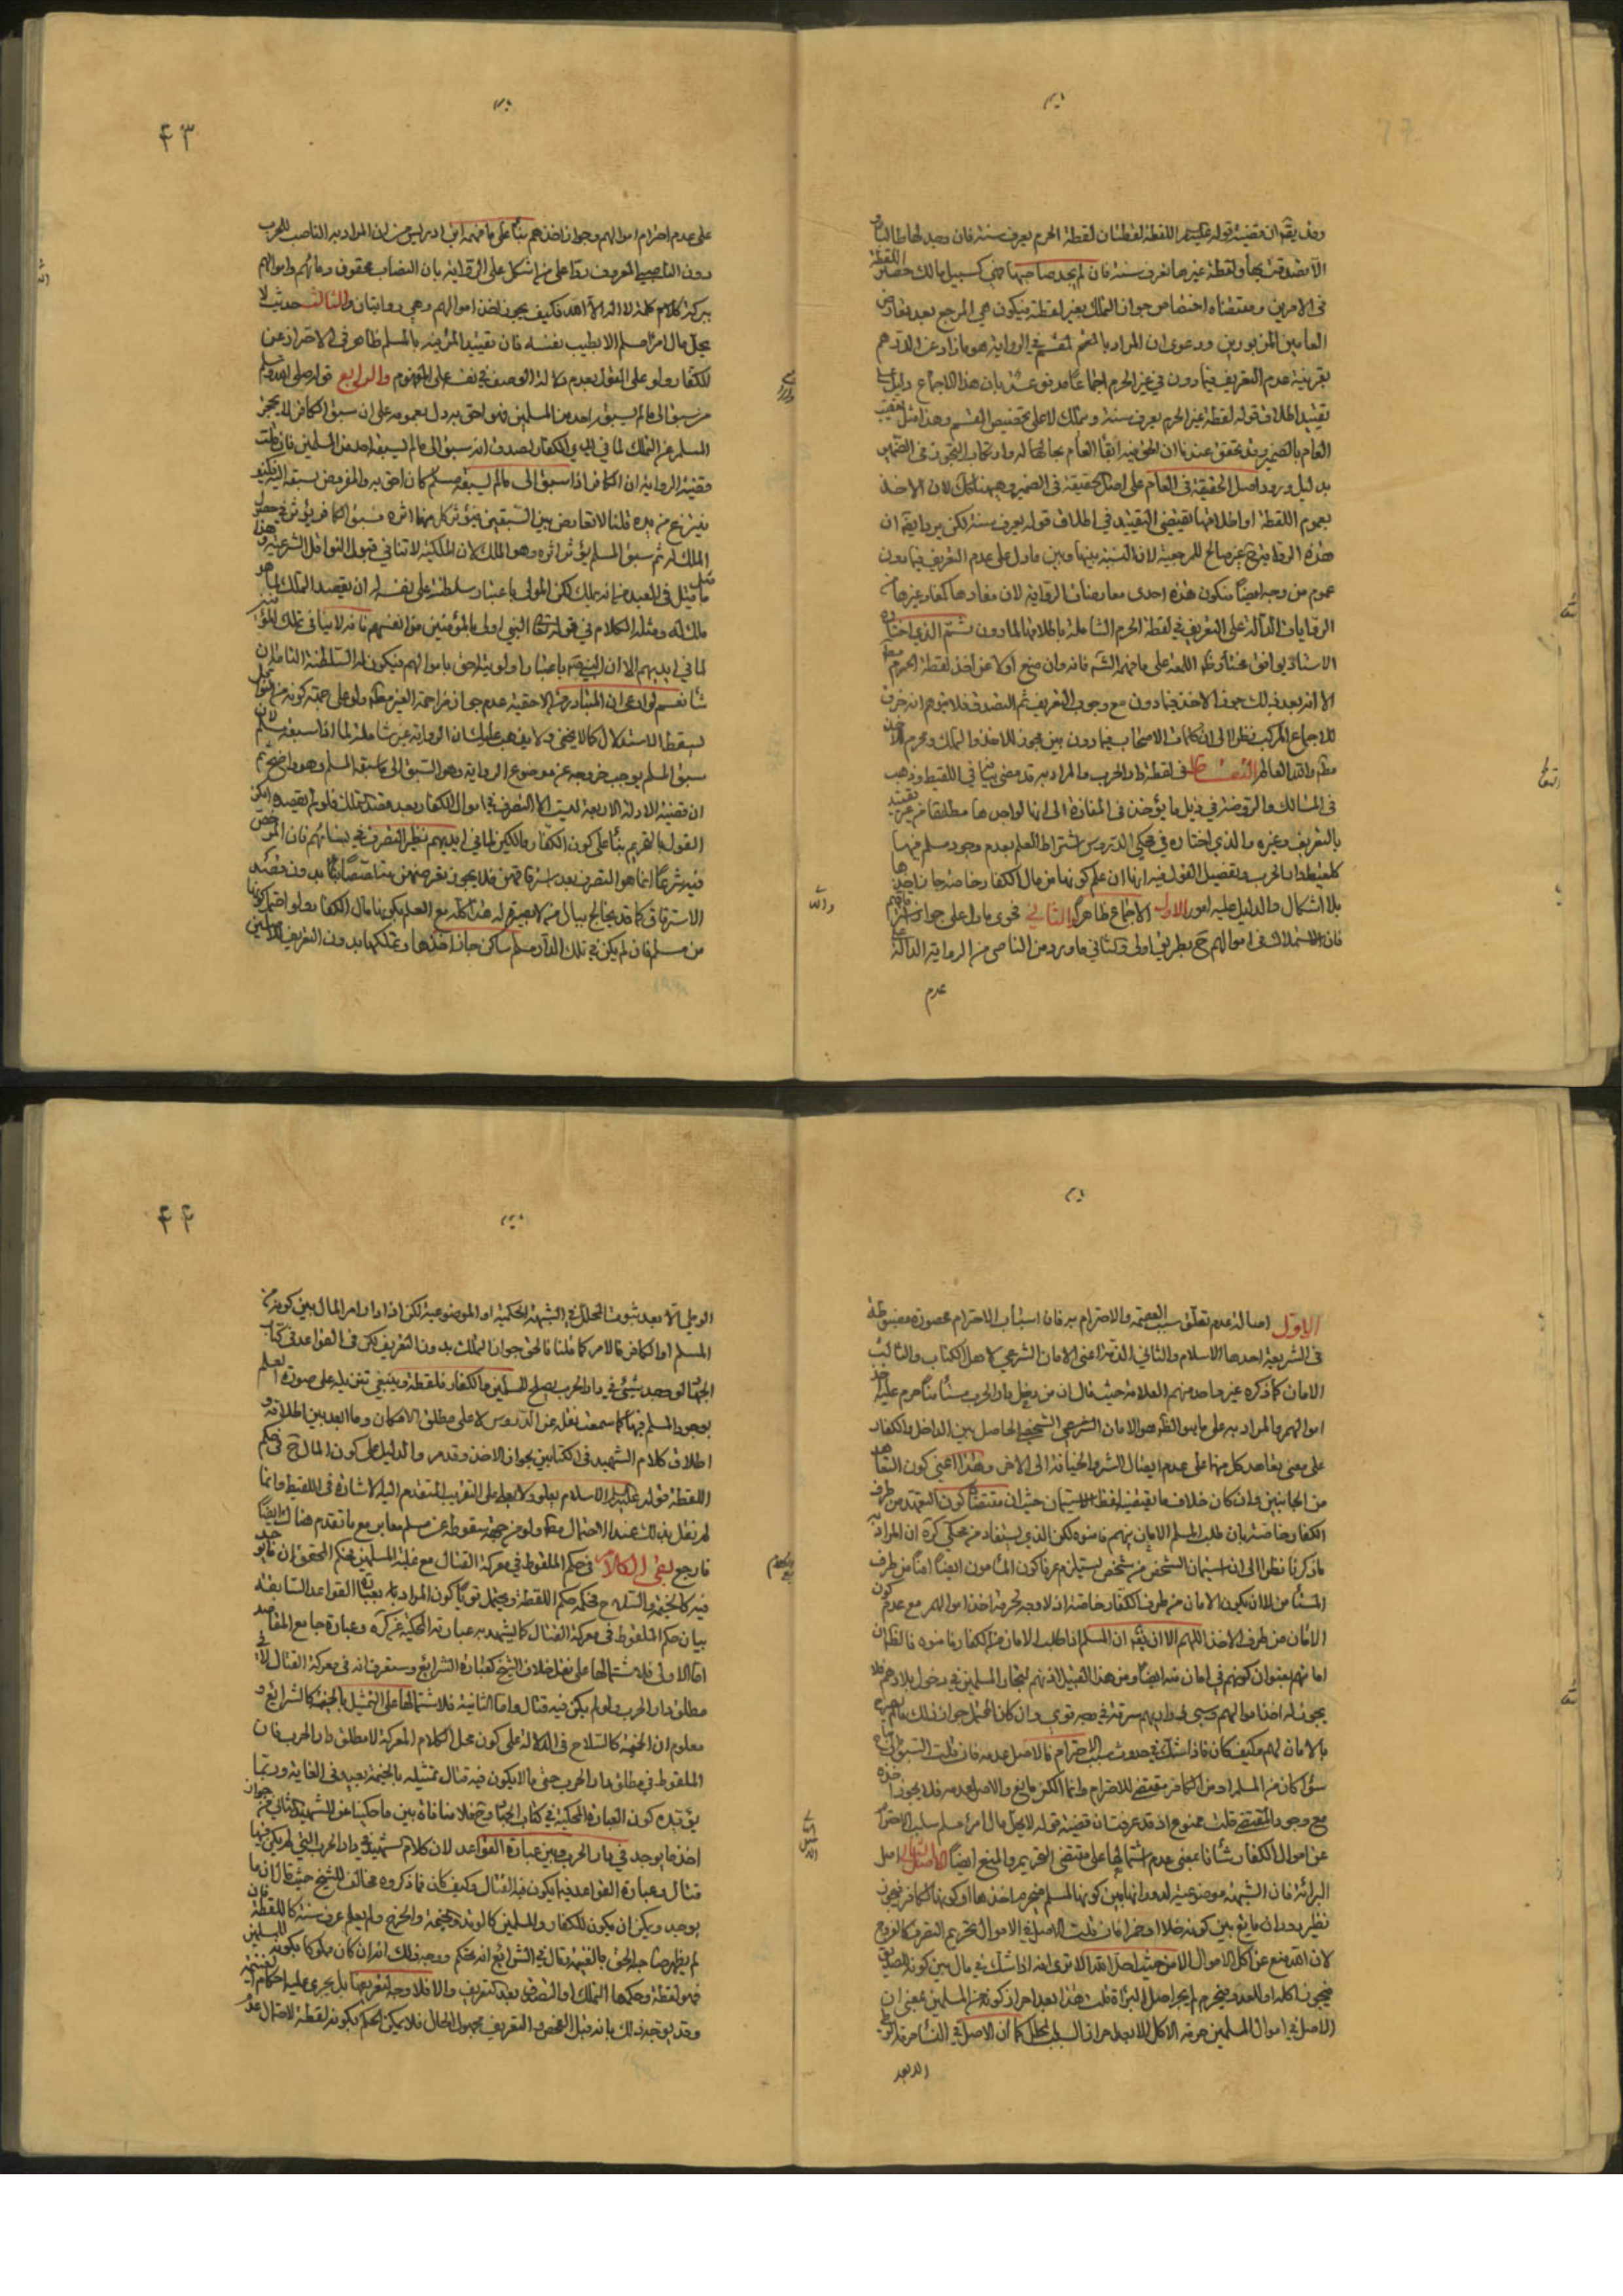 وقد يقم ان قضية قوله اللقطة لقطتان لقطة الحرم يعرف سنة فان وجد لها طالبا و
الا تصدقت بها ولقطة غيرها تعرف سنة فان لم يجد صاحبها فهي كسبيل مالك
في الامرين ومقتضاه اختصاص جواز التملك بغير لقطته فيكون هي المرجع بعد تعارض
العامين المزبورين ودعوى ان المراد بالمقسم في الرواية هو ما زاد عن الدرهم
بقرينة عدم التعريف فيما دون في غير الحرم اجماعا مدفوعة بان هذا الاجماع دليل على
تقييد اطلاق قوله لقطة غير الحرم يعرف سنة لا على تخصيص المقسم وهذا مثل تعقيب
العام بالضمير وقد تحقق عندنا ان الحق فيه ابقاء العام بحاله وارتكاب التجوز في الضمير
بدليل ورود اصل الحقيقة في العام على اصل الحقيقة في الضمير وههنا كك لان الاخذ
بعموم اللقطة او اطلاقها يقتضي التقييد في اطلاق قوله يعرف سنة لكن يرد ان
هذه الرواية غير صالح للمرجعية لان النسبة بينها وبين ما دل على عدم التعريف فيما دون
عموم من وجه ايضا فتكون هذه احدى معارضات الرواية لان مفادها كمفاد غيرها من
الروايات الدالة على التعريف في لقطة الحرم الشاملة باطلاقها لما دون ثم الذي اختاره
الاستاذ يوافق
الا انه بعد ذلك جوز الاخذ فيما دون مع وجوب التعريف ثم التصدق فلا يتوهم انه خرق
للاجماع المركب نظرا الى ان كلمات الاصحاب فيما دون بين مجوز للاخذ والتملك ومحرم للاخذ
والله العالم في لقطة دار الحرب والمراد به قد مضى في اللقيط وذهب
في المسالك والروضة في ذيل ما يؤخذ في المفازة الى انها لواجدها مطلقا من غير تقييد
بالتعريف وغيره والذي اختاره في محكي الدروس اشتراط العلم بعدم وجود مسلم فيها
كلقيط دار الحرب وتفصيل القول فيه انه ان علم كونها من مال الكفار خاصة جاز اخذها
بلا اشكال والدليل عليه امور الاول الاجماع ظاهرا والثاني فحوى ما دل على جواز
فان الاستملاك في اموالهم بطريق اولى ما ورد من الرواية الدالة
عدم
۴۳
على عدم احترام اموالهم وجواز اخذهم بناء على ما فهمه ابن ادريس من ان المراد به الناصب للحرب
دون الناصبي المعروف ردا على من اشكل على الرواية بان النصاب محقون دماؤهم واموالهم
ببركة كلام كلمة لا اله الا الله فكيف يجوز اخذ اموالهم وهي روايتان والثالث حديث لا
يحل مال امرء مسلم الا بطيب نفسه فان تقييد المرء فيه بالمسلم ظاهر في الاحتراز عن
الكفار ولو على القول بعدم دلالة الوصف في نفسه على المفهوم والرابع قوله صلى الله عليه
من سبق الى ما لم يسبقه احد من المسلمين فهو احق به دل بعمومه على ان سبق الكافر لا يحجز
المسلم عن التملك لما في ايدي الكفار لصدق انه سبق الى ما لم يسبقه احد من المسلمين فان قلت
قضية الرواية ان الكافر اذا سبق الى ما لم يسبقه مسلم كان احق به والمفروض سبقه اليه فكيف
ينتزع من يده قلنا لا تعارض بين السبقين فيؤثر كل منهما اثره فسبق الكافر يؤثر في حصول
الملك له ثم سبق المسلم يؤثر اثره وهو الملك لان الملكية لا تنافي قبول النواقل الشرعية
ما قيل في العبد من انه يملك لكن المولى باعتبار سلطنته على نفسه له ان يقصد التملك
ملك له ومثله الكلام في قوله تعالى النبي اولى بالمؤمنين من انفسهم فانه لا ينافي تملك
لما في ايديهم الا ان النبي باعتبار اولويته احق باموالهم فيكون له السلطنة التامة ان
شاء نعم لو ادعى ان المتبادر من الاحقية عدم جواز مزاحمة الغير
لسقط الاستدلال كما لا يخفى ولا يذهب عليك ان الرواية غير شاملة لما اذا سبقه مسلم لان
سبق المسلم يوجب خروجه عن موضوع الرواية وهو السبق الى ما سبقه المسلم وهو واضح ثم
ان قضية الادلة الاربعة ليست الا التصرف في اموال الكفار بعد قصد تملك فلو لم يقصد امكن
القول بالتحريم بناء على كون الكفار مالكين لما في ايديهم نظير التصرف في نسائهم فان المرخص
فيه شرعا انما هو التصرف بعد استرقاقهن فلا يجوز بدون قصد
الاسترقاق كما قد يختلج ببال من لا بصيرة له هذا كله مع العلم بكونها مال الكفار ولو احتمل كونها
من مسلم فان لم يكن في تلك الدار مسلم ساكن جاز اخذها وتملكها بدون التعريف
الاول اصالة عدم تعلق سبب العصمة والاحترام به فان اسباب الاحترام محصورة مضبوطة
في الشريعة احدها الاسلام والثاني الذمة اعني الامان الشرعي لاهل الكتاب والثالث
الامان كما ذكره غير واحد منهم العلامة حيث قال ان من دخل دار الحرب مستأمنا حرم عليه
اموالهم والمراد به على ما هو الظ هو الامان الشرعي الشخصي الحاصل بين الداخل والكفار
على معنى تعاهد كل منهما على عدم ايصال الشر والخيانة الى الاخر وهذا اعني كون التعاهد
من الجانبين وان كان خلاف ما يقتضيه لفظ الاستيمان حيث ان مقتضاه كون التعهد من طرف
الكفار خاصة بان طلب المسلم الامان منهم فامنوه لكن الذي يستفاد من محكي كره ان المراد به
ما ذكرنا نظرا الى ان استيمان الشخص من شخص يستلزم عرفا كون المأمون ايضا امنا من طرف
المستأمن لا ان يكون الامان من طرف الكفار خاصة اذ لا وجه لحرمة اخذ اموالهم مع عدم كون
الامان من طرف الاخذ اللهم الا ان يقم ان المسلم اذا طلب الامان من الكفار فامنوه فالظ ان
امانهم بعنوان كونهم في امان منه ايضا ومن هذا القبيل اذنهم لتجار المسلمين في دخول بلادهم فلا
يجوز له اخذ اموالهم وسبي ذراريهم سرقة في وجه قوي وان كان المحتمل جواز ذلك
بالامان لهم وكيف كان فاذا شك في حدوث سبب الاحترام فالاصل عدمه فان قلت السبق
سواء كان من المسلم او من الكافر مقتض للاحترام وانما الكفر مانع والاصل عدمه فلا يجوز اخذه
مع وجود المقتضي قلت ممنوع اذ قد عرفت ان قضية قوله لا يحل مال امرء مسلم سلب الاحترام
عن اموال الكفار شأنا بمعنى عدم اشتمالها على مقتضى التحريم والمنع ايضا الثاني اصل
البرائة فان الشبهة موضوعية لدورانها بين كونها لمسلم فيحرم اخذها او كونها لكافر فيجوز
نظير دوران مايع بين كونه خلا او خمرا فان قلت الاصل في الاموال تحريم التصرف كالفروج
لان الله منع عن اكل الاموال الا من حيث احل الله الا ترى انه اذا شك في مال بين كونه للصديق
فيجوز اكله او للعدو فيحرم لم يجر اصل البرائة قلت هذا بعد احراز كونه من المسلمين بمعنى ان
الاصل في اموال المسلمين حرمة الاكل الا بعد احراز السبب المحلل كما ان الاصل في النساء حرمة الوطي
الا بعد
۴۴
الوطي الا بعد ثبوت المحلل في الشبهة الحكمية او الموضوعية لكن اذا دار امر المال بين كونه من
المسلم او الكافر فالامر كما قلنا فالحق جواز التملك بدون التعريف لكن في القواعد في كتاب
الجهاد لو وجد شيئ في دار الحرب يصلح للمسلمين والكفار فلقطة وينبغي تنزيله على صورة العلم
بوجود المسلم فيها كما سمعت نقله عن الدروس لا على مطلق الامكان وما ابعد بين اطلاقه و
اطلاق كلام الشهيد في الكتابين بجواز الاخذ وقد مر والدليل على كون المال ح في حكم
اللقطة قوله عليه السلام الاسلام يعلو ولا يعلى على التقريب المتقدم اليه الاشارة في اللقيط وانما
لم نقل بذلك عند الاحتمال مع ما تقدم هناك ايضا
فارجع بقي الكلام في حكم الملقوط في معركة القتال مع غلبة المسلمين فحكم المحقق ان ما يوجد
فيه كالخيمة والسلاح فحكمه حكم اللقطة ويحتمل قويا كون المراد به بعبارة القواعد السابقة
بيان حكم الملقوط في معركة القتال كما يشهد به عبارته المحكية عن كره وعبارة جامع المقاصد
اما الاولى فلاشتمالها على نقل خلاف الشيخ كعبارة الشرائع وستعرف انه في معركة القتال لا في
مطلق دار الحرب ولو لم يكن فيه قتال واما الثانية فلاشتمالها على التمثيل بالخيمة كالشرائع و
معلوم ان الخيمة كالسلاح في الدلالة على كون محل الكلام المعركة لا مطلق دار الحرب فان
الملقوط في مطلق دار الحرب حتى ما لا يكون فيه قتال تمثيله بالخيمة بعيد في الغاية وربما
يؤيده كون العبارة المحكية في كتاب الجهاد وح فلا منافاة بين ما حكينا عن الشهيد الثاني من جواز
اخذ ما يوجد في دار الحرب وبين عبارة القواعد لان كلام الشهيد في دار الحرب التي لم يكن فيها
قتال وعبارة القواعد فيما يكون فيه القتال وكيف كان فما ذكروه مخالف للشيخ حيث قال ان ما
يوجد ويمكن ان يكون للكفار وللمسلمين كالوتد والخيمة والخرج ولم يعلم عرف سنة كاللقطة فان
لم يظهر صاحبه الحق بالغنيمة وقال في الشرائع انه تحكم ووجه ذلك انه ان كان محكوما بكونه للمسلمين
فهو لقطة وحكمها التملك او التصدق بعد التعريف والا فلا وجه لتعريفها بل يجري عليه احكام الغنيمة
وقد يوجه ذلك بانه قبل الفحص والتعريف مجهول الحال فلا يمكن الحكم بكونه لقطة لاحتمال